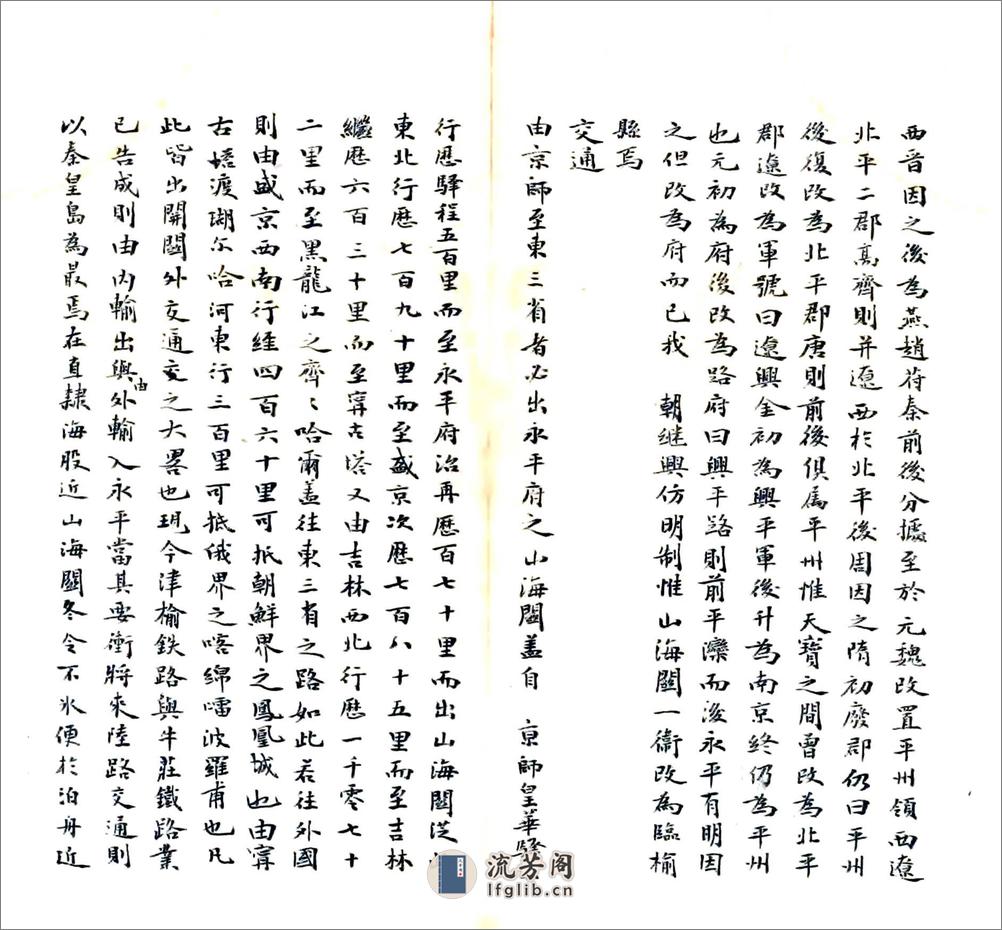 西晉因之後為燕趙苻秦前後分據至於元魏改置平州領西遼
北平二郡髙齊則并遼西於北平後周因之隋初廢郡仍曰平州
後復改為北平郡唐則前後俱属平州惟天寶之間曾改為北平
郡遼改為軍號曰遼興金初為興平軍後升為南京終仍為平州
也元初為府後改為路府曰興平路則前平灤而後永平有明因
之但改為府而已我 朝继興仿明制惟山海關一衞改為臨榆
縣焉
交通
由京師至東三省者必出永平府之山海關盖自 京師皇華驛
行歷驛程五百里而至永平府治再歷百七十里而出山海關從
東北行歷七百九十里而至盛京次歷七百八十五里而至吉林
繼歷六百三十里而至甯古塔又由吉林西北行歷一千零七十
二里而至黑龍江之齊〻哈爾盖往東三省之路如此若往外國
則由盛京西南行経四百六十里可抵朝鮮界之鳳凰城也由甯
古塔渡瑚尓哈河東行三百里可抵俄界之喀綿㗶波羅甫也凡
此皆出開關外交通交之大畧也現今津榆鉄路與牛莊鐵路業
已告成則由内輸出與由外輸入永平當其要衝將來陸路交通則
以秦皇島為最焉在直隸海股近山海關冬令不氷便於泊舟近
流芳阁
lfglib.cn